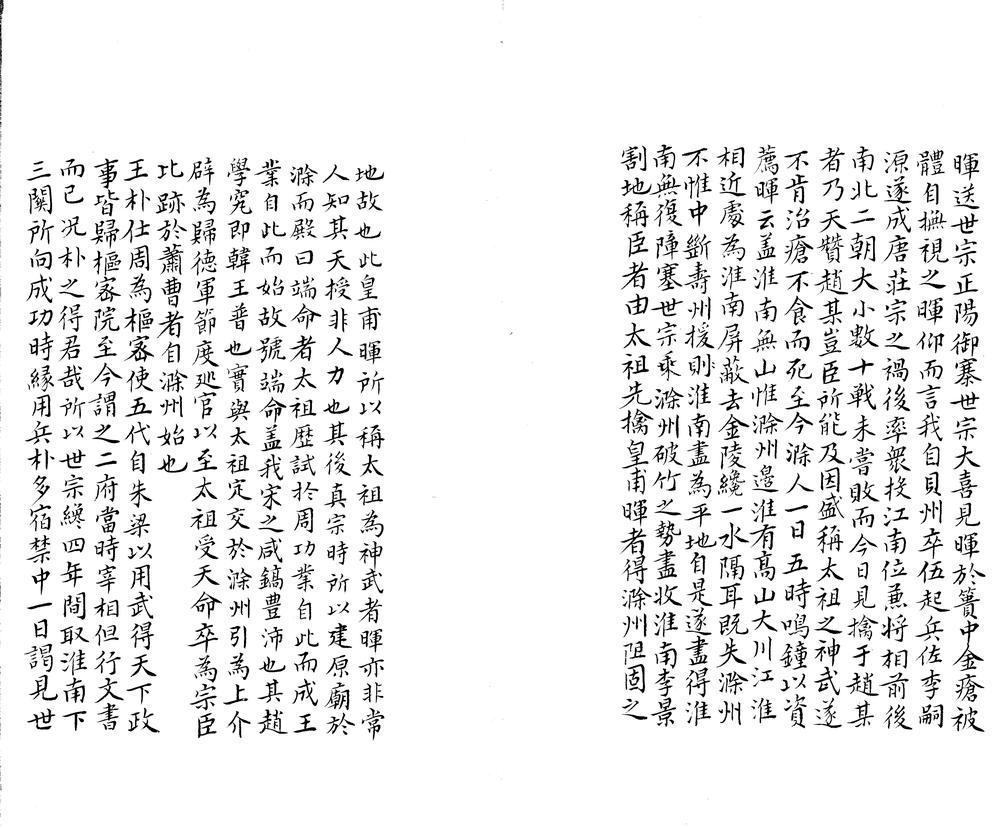 暉送世宗正陽御寨世宗大喜見暉於簣中金瘡被
體自撫視之暉仰而言我自貝州卒伍起兵佐李嗣
源遂成唐莊宗之禍後率衆投江南位兼將相前後
南北二朝大小數十戰未嘗敗而今日見擒于趙某
者乃天贊趙某豈臣所能及因盛稱太祖之神武遂
不肯治瘡不食而死至今滁人一日五時鳴鐘以資
薦暉云盖淮南無山惟滁州邊淮有髙山大川江淮
相近處為淮南屏蔽去金陵纔一水隔耳既失滁州
不惟中斷壽州援則淮南盡為平地自是遂盡得淮
南無復障塞世宗乘滁州破竹之勢盡收淮南李景
割地稱臣者由太祖先擒皇甫暉者得滁州阻固之
地故也此皇甫暉所以稱太祖為神武者暉亦非常
人知其天授非人力也其後真宗時所以建原廟於
滁而殿曰端命者太祖歷試於周功業自此而成王
業自此而始故號端命盖我宋之咸鎬豐沛也其趙
學究即韓王普也實與太祖定交於滁州引為上介
辟為歸德軍節度巡官以至太祖受天命卒為宗臣
比跡於蕭曹者自滁州始也
王朴仕周為樞宻使五代自朱梁以用武得天下政
事皆歸樞宻院至今謂之二府當時宰相但行文書
而已況朴之得君哉所以世宗纔四年間取淮南下
三關所向成功時緣用兵朴多宿禁中一日謁見世